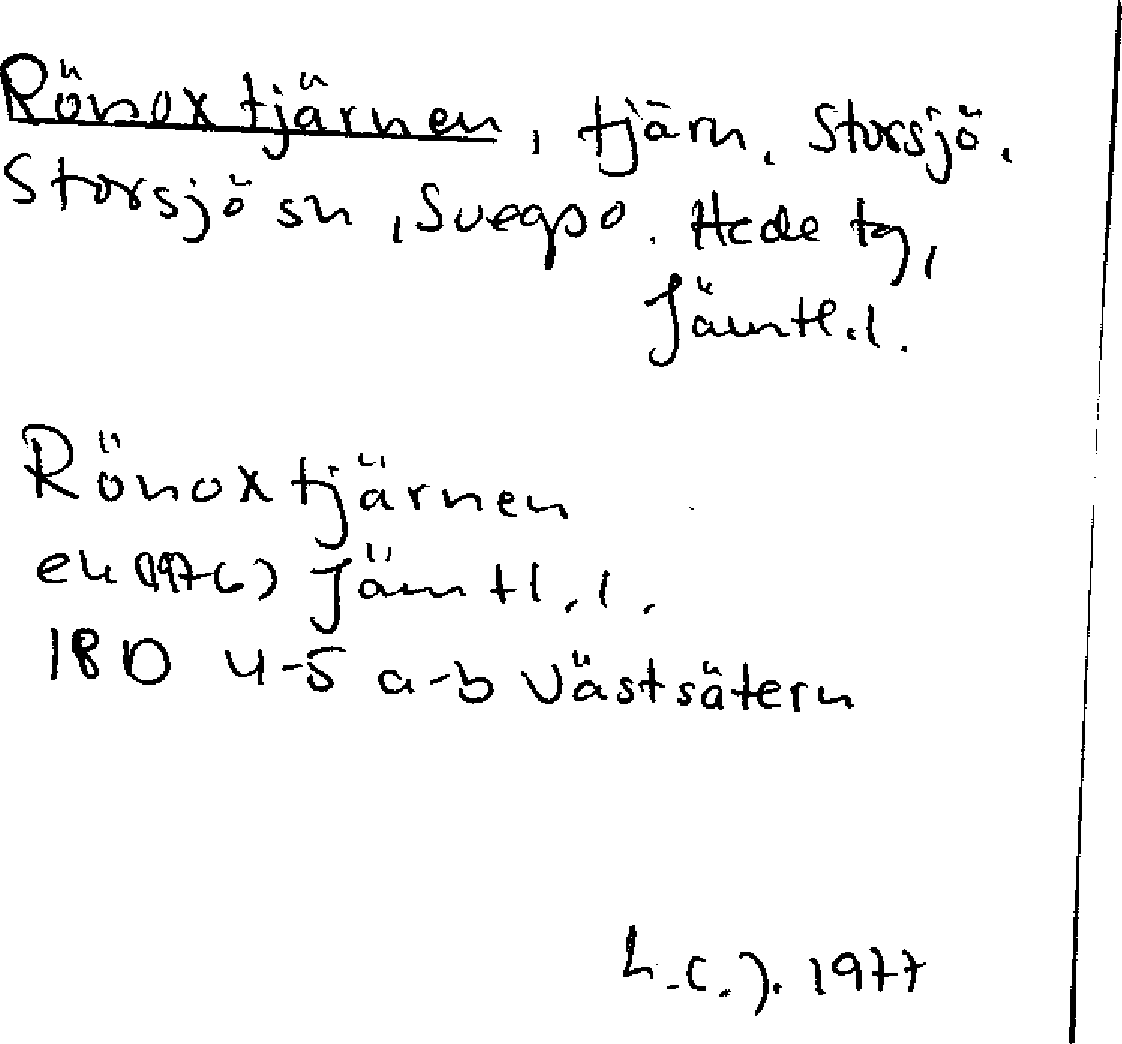 Rönoxtjärnen, tjärn. Storsjö.
Storsjö sn, Svegs po. Hede tg,
Jämtl.l.
Rönoxtjärnen
ek (1976) Jämtl.l.
18D 4-5 a-b Västsätern
L.C.J. 1977